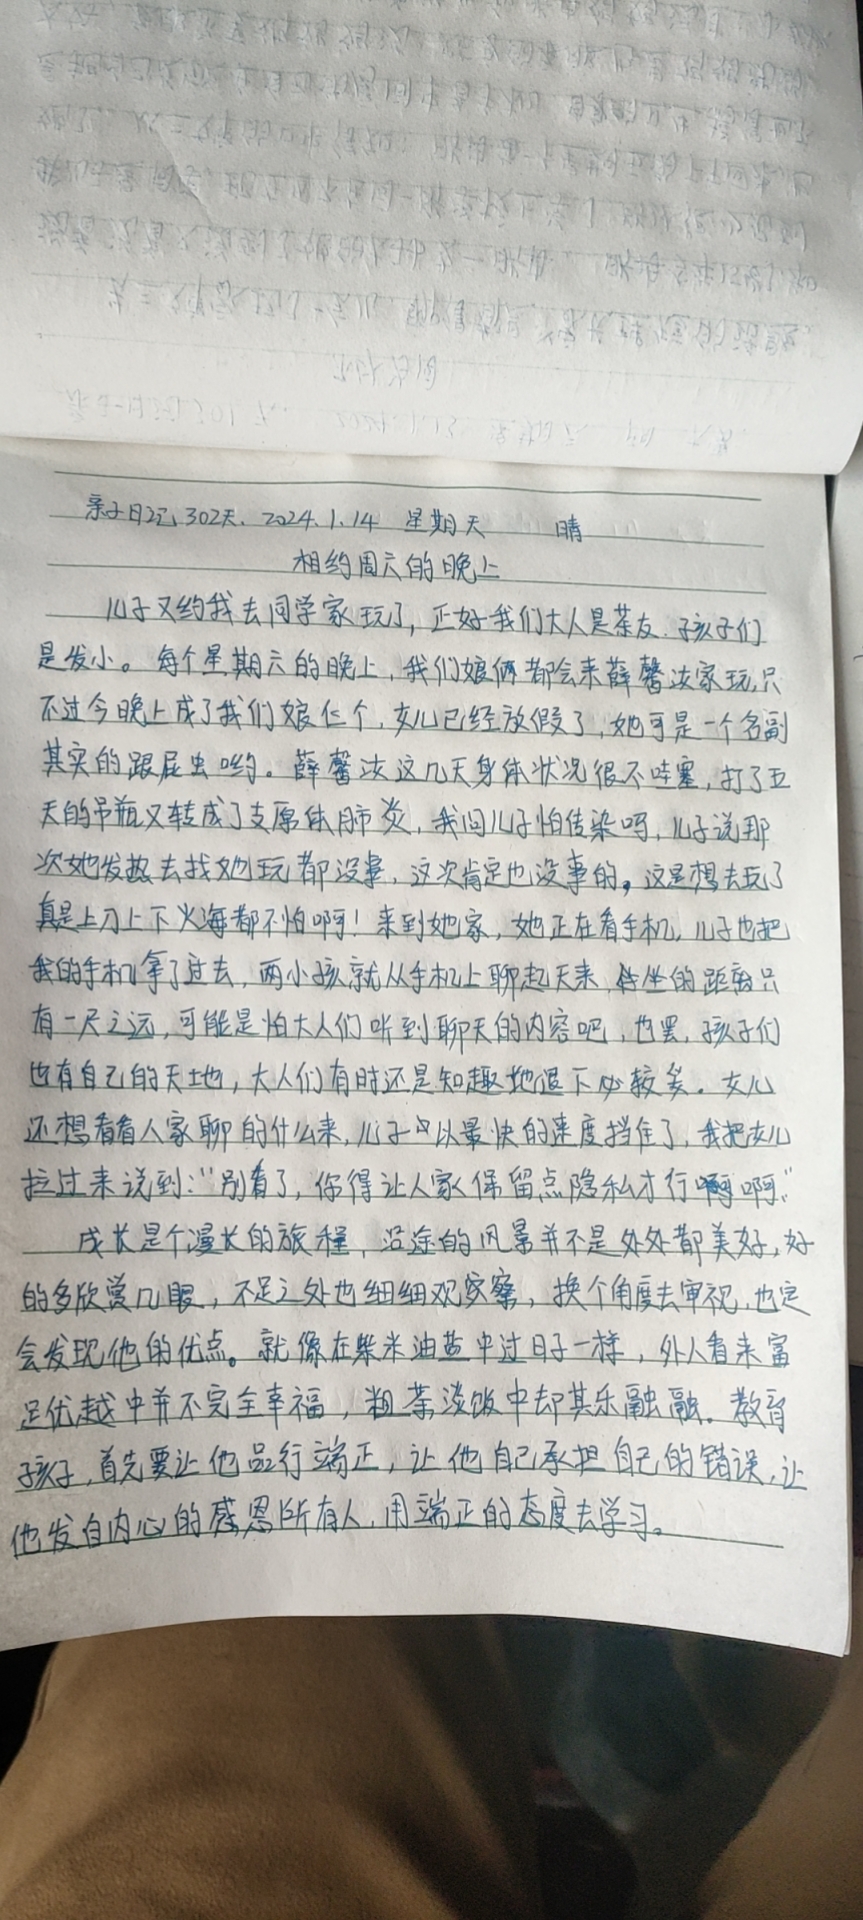 亲子日记302天. 2024.1.14 星期天 晴
相约周六的晚上
儿子又约我去同学家玩了,正好我们大人是茶友.孩子们
是发小。每个星期六的晚上,我们娘俩都会来薛馨汝家玩,只
不过今晚上成了我们娘仨个,女儿已经放假了,她可是一个名副
其实的跟屁虫哟。薛馨汝这几天身体状况很不哇塞,打了五
天的吊瓶又转成了支原体肺炎,我问儿子怕传染吗,儿子说那
次她发热去找她玩都没事,这次肯定也没事的,这是想去玩了
真是上刀上下火海都不怕啊!来到她家,她正在看手机,儿子也把
我的手机拿了过去,两小孩就从手机上聊起天来,坐的距离只
有一尺之远,可能是怕大人们听到聊天的内容吧,也罢,孩子们
也有自己的天地,大人们有时还是知趣地退下必较多.女儿
还想看看人家聊的什么来,儿子以最快的速度挡住了,我把女儿
拉过来说到:“别看了,你得让人家保留点隐私才行啊啊.”
成长是个漫长的旅程,沿途的风景并不是处处都美好,好
的多欣赏几眼,不足之处也细细观察,换个角度去审视,也定
会发现他的优点。就像在柴米油盐中过日子一样,外人看来富
足优越中并不完全幸福,粗茶淡饭中却其乐融融.教育
孩子,首先要让他品行端正,让他自己承担自己的错误,让
他发自内心的感恩所有人,用端正的态度去学习。